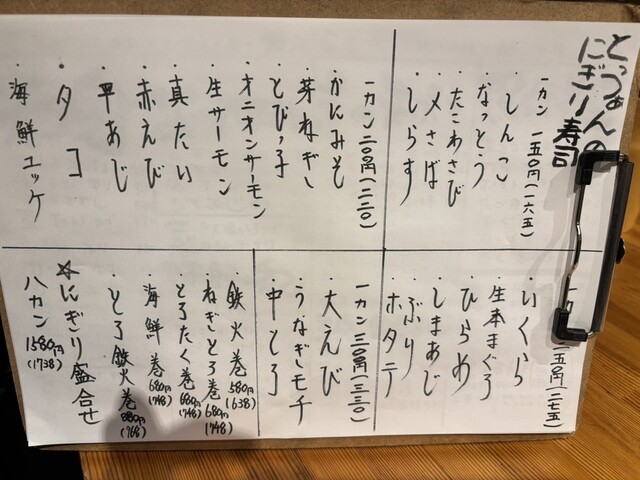 とっつぁんの
にぎり寿司
一カン 一五〇円(一六五)
・しんこ
・なっとう
・たこわさび
・〆さば
・しらす
一カン 二〇〇円(二二〇)
・かにみそ
・芽ねぎ
・とびっ子
・オニオンサーモン
・生サーモン
・真たい
・赤えび
・平あじ
・タコ
・海鮮ユッケ
五〇円(二七五)
・いくら
・生本まぐろ
・ひらめ
・しまあじ
・ぶり
・ホタテ
一カン 三〇〇円(三三〇)
・大えび
・うなぎモチ
・中とろ
・鉄火巻 580円(638)
・ねぎとろ巻 680円(748)
・とろたく巻 680円(748)
・海鮮巻 680円(748)
・とろ鉄火巻 880円(968)
☆にぎり盛合せ
八カン 1580円(1738)